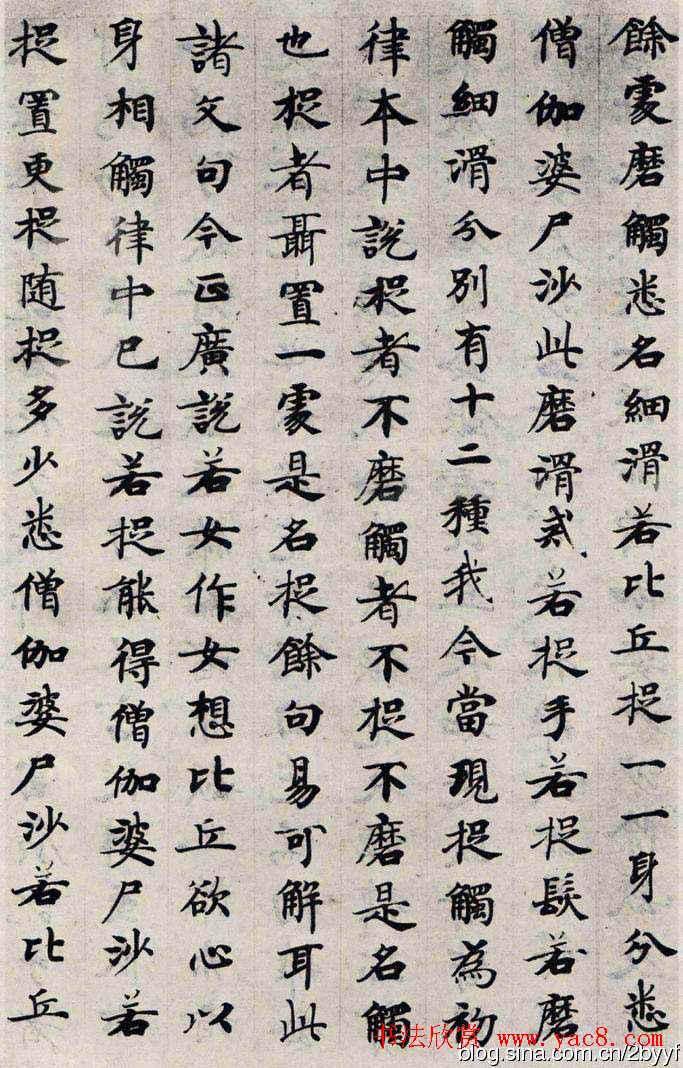 餘處磨觸悉名細滑若比丘捉一一身分悉
僧伽婆尸沙此磨滑戒若捉手若捉髮若磨
觸細滑分別有十二種我今當現捉觸為初
律本中說捉者不磨觸者不捉不磨是名觸
也捉者聶置一處是名捉餘句易可解耳此
諸文句今正廣說若女作女想比丘欲心以
身相觸律中已說若捉能得僧伽婆尸沙若
捉置更捉随捉多少悉僧伽婆尸沙若比丘
书法欣赏 www.yac8.com
blog.sina.com.cn/2byyf